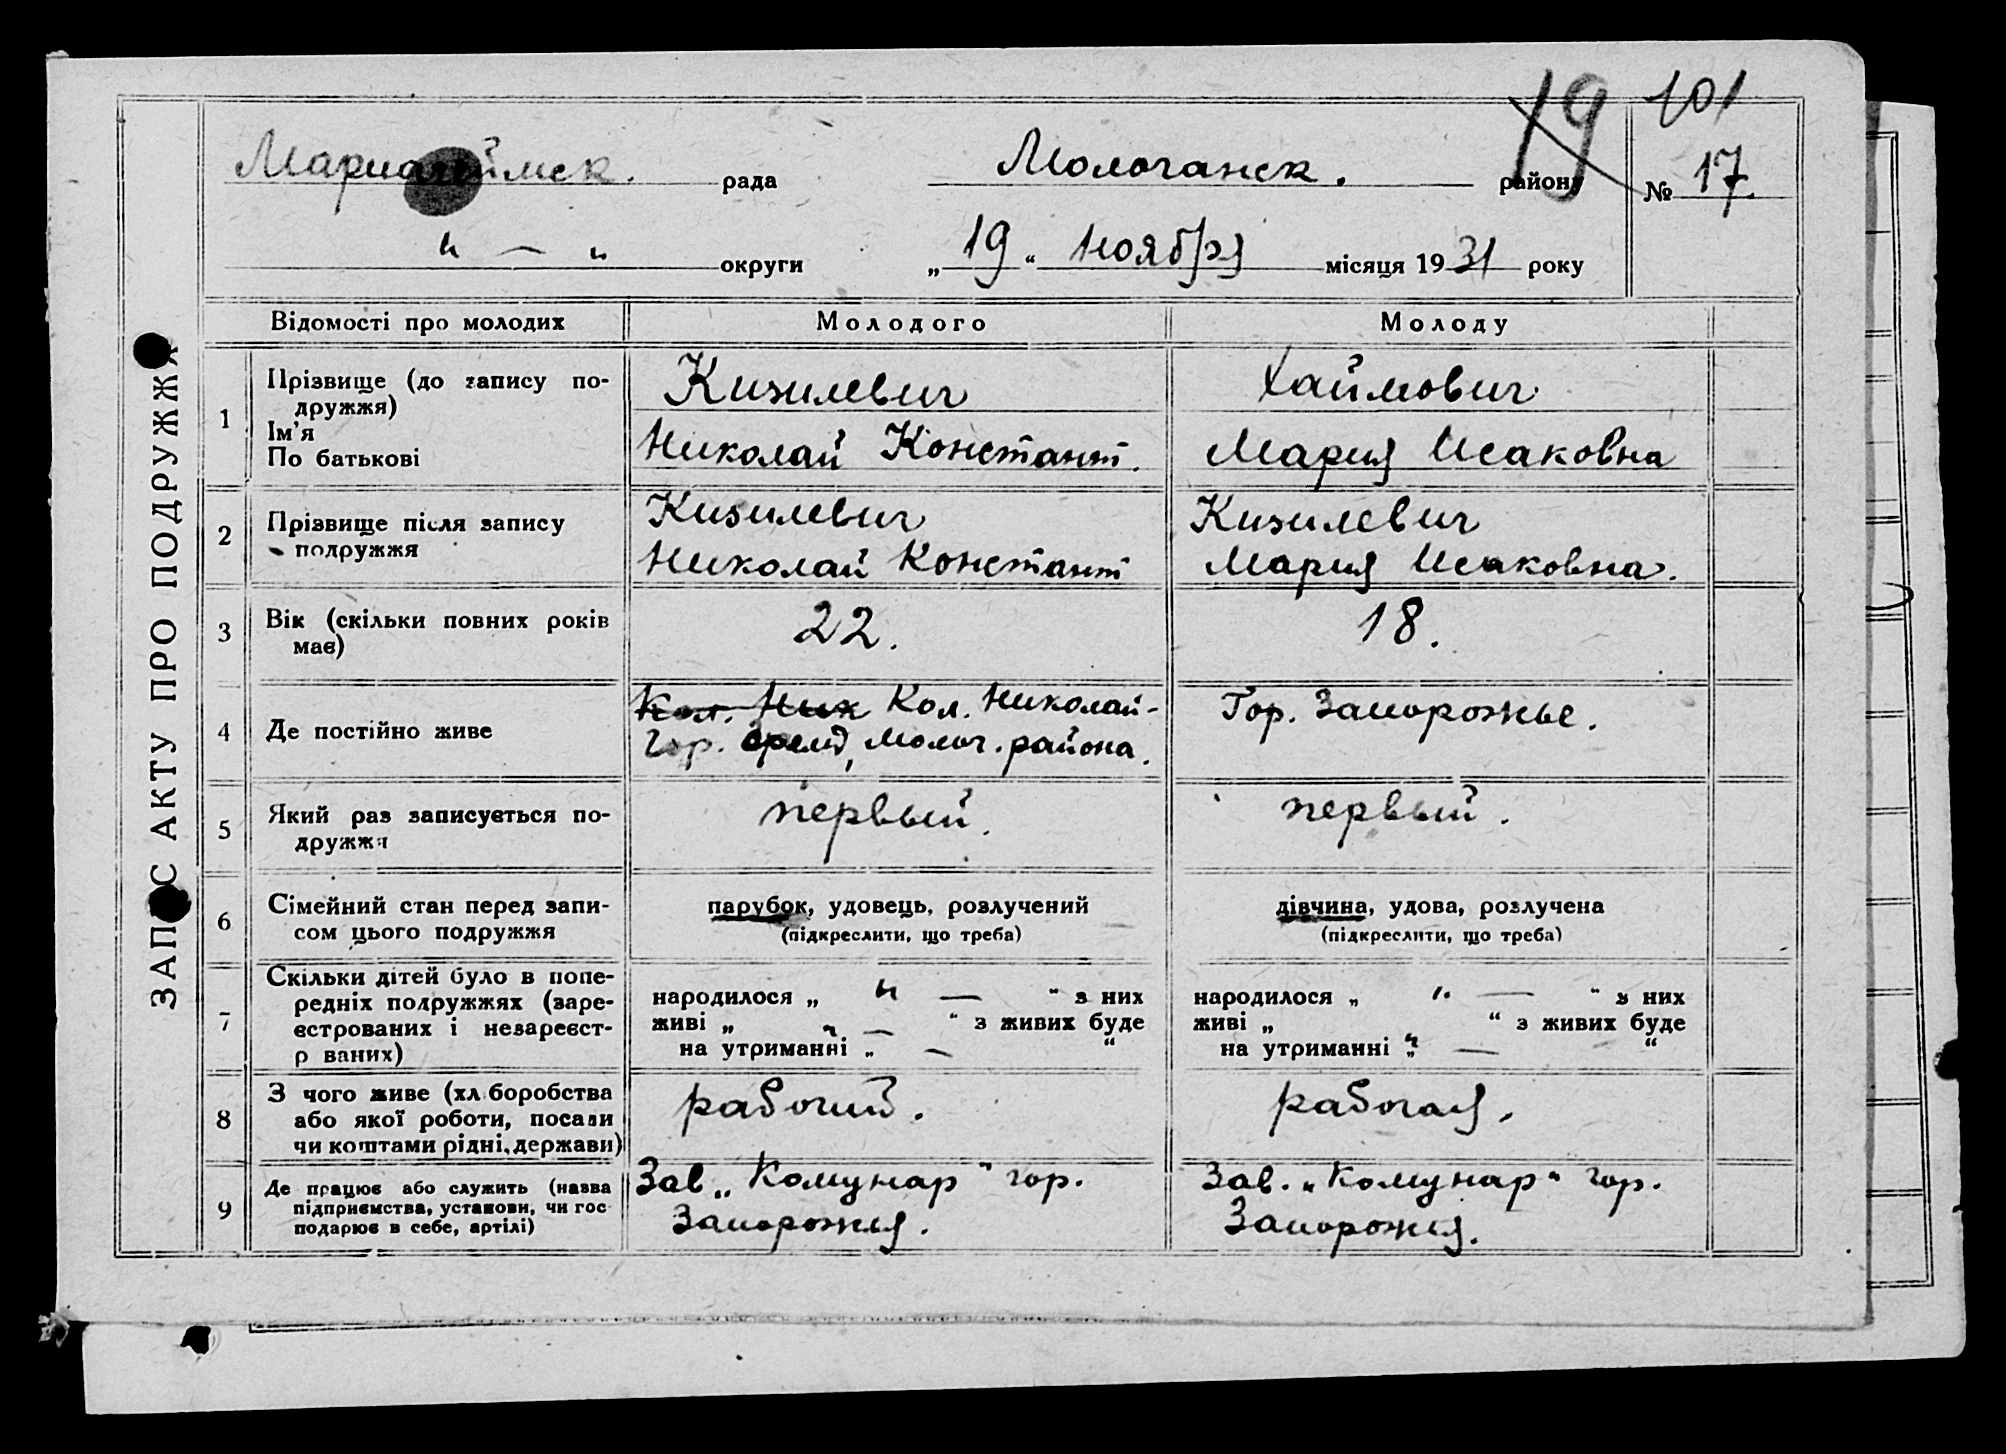 19 101
рада Молочанск. району № 17.
" — " округи „19" ноября місяця 1931 року
ЗАПИС АКТУ ПРО ПОДРУЖЖЯ
Відомості про молодих Молодого Молоду
1 Прізвище (до запису по-
дружжя)
Ім'я
По батькові
Кизилевич
Николай Константт.
Хаймович
Мария Исаковна
2 Прізвище після запису
подружжя
Кизилевич
Николай Константт
Кизилевич
Мария Исаковна.
3 Вік (скільки повних років
має)
22.
18.
4 Де постійно живе
Кол. Ник Кол. Николай-
Молоч. района.
Гор. Запорожье.
5 Який раз записується по-
дружжя
первый.
первый.
6 Сімейний стан перед запи-
сом цього подружжя
парубок, удовець, розлучений
(підкреслити, що треба)
дівчина, удова, розлучена
(підкреслити, що треба)
7 Скільки дітей було в попе-
редніх подружжях (заре-
єстрованих і незареєст-
р ваних)
народилося „ " — " з них
живі „ " — " з живих буде
на утриманні „ — "
народилося „ " — " з них
живі „ " з живих буде
на утриманні „ " — "
8 З чого живе (хл боробства
або якої роботи, посади
чи коштами рідні, держави)
рабочий.
рабочая.
9 Де працює або служить (назва
підприємства, установи, чи гос
подарює в себе, артілі)
Зав „Комунар" гор.
Запорожья.
Зав. „Комунар" гор.
Запорожья.